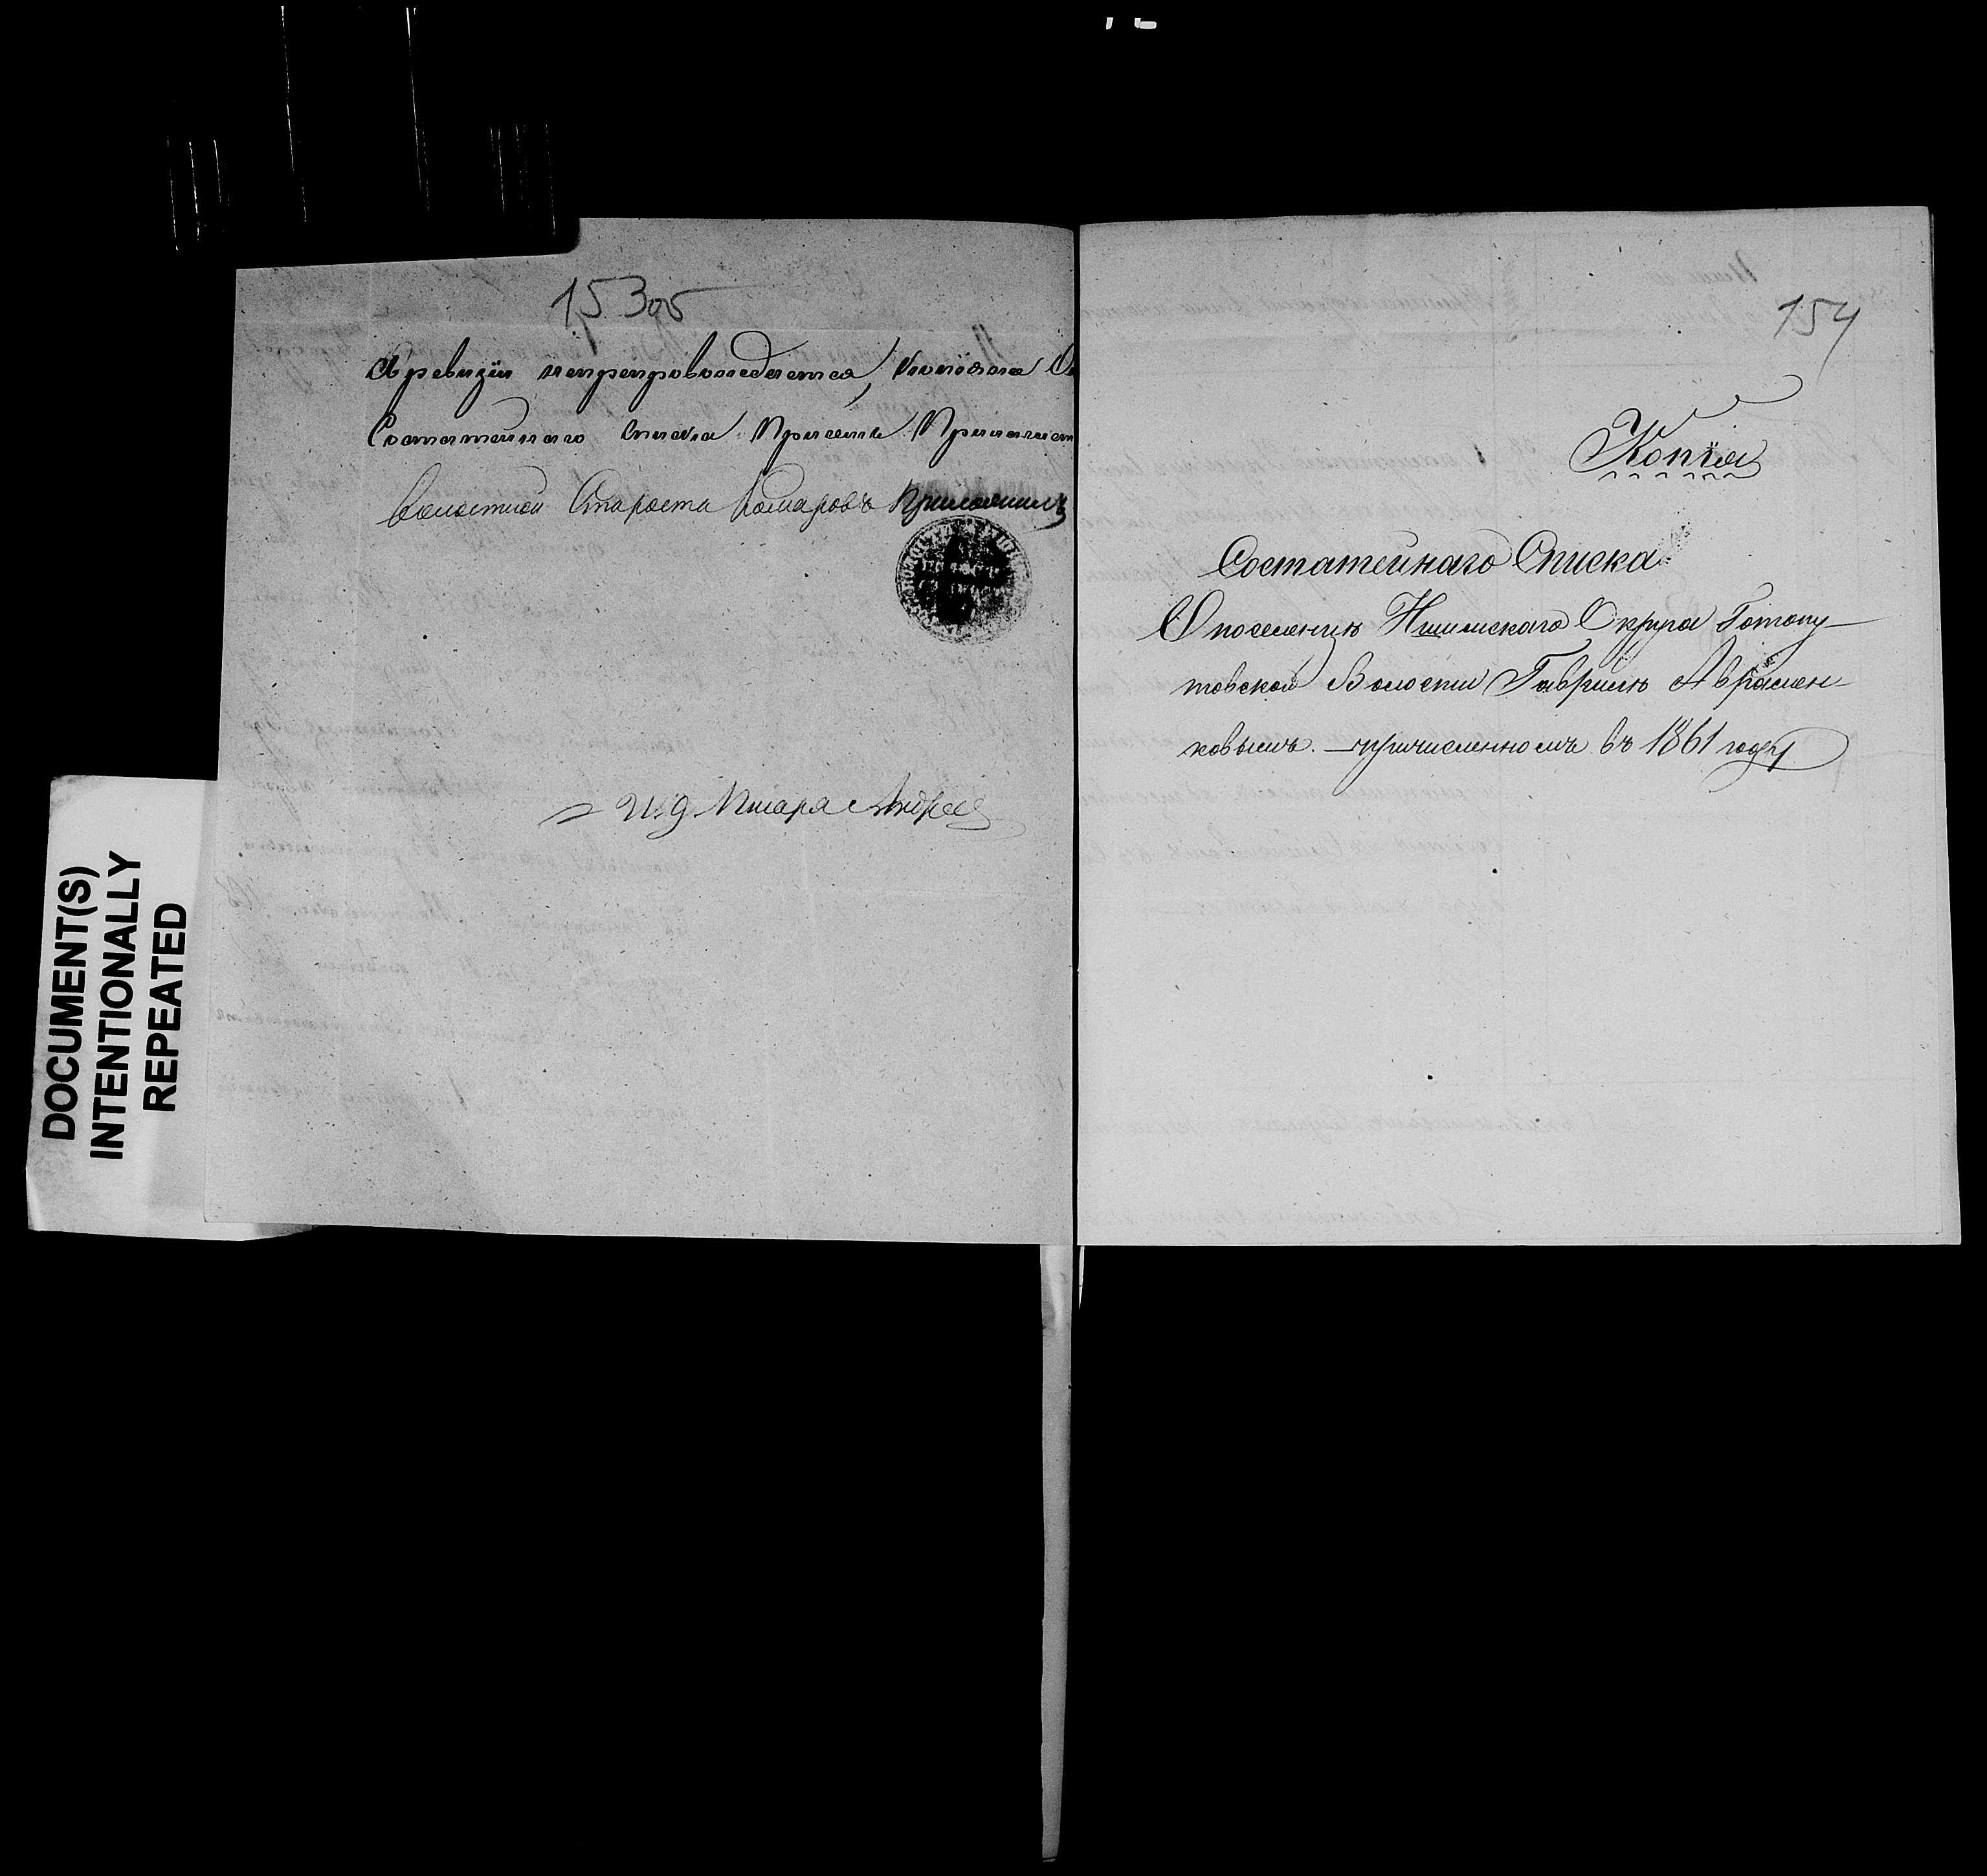 153об
ревизіи непрепровождается, Копія
Статейнаго списка при семъ Прилагает
Волостной Староста Комаровъ
И.д. Писаря Андреев
DOCUMENT(S)
INTENTIONALLY
REPEATED
154
Копія
Состатейнаго Списка
О поселенцѣ Ишимскаго Округа Готопу-
товской Волости Гавриилѣ Аврамен-
ковымъ. — причисленномъ въ 1861 году